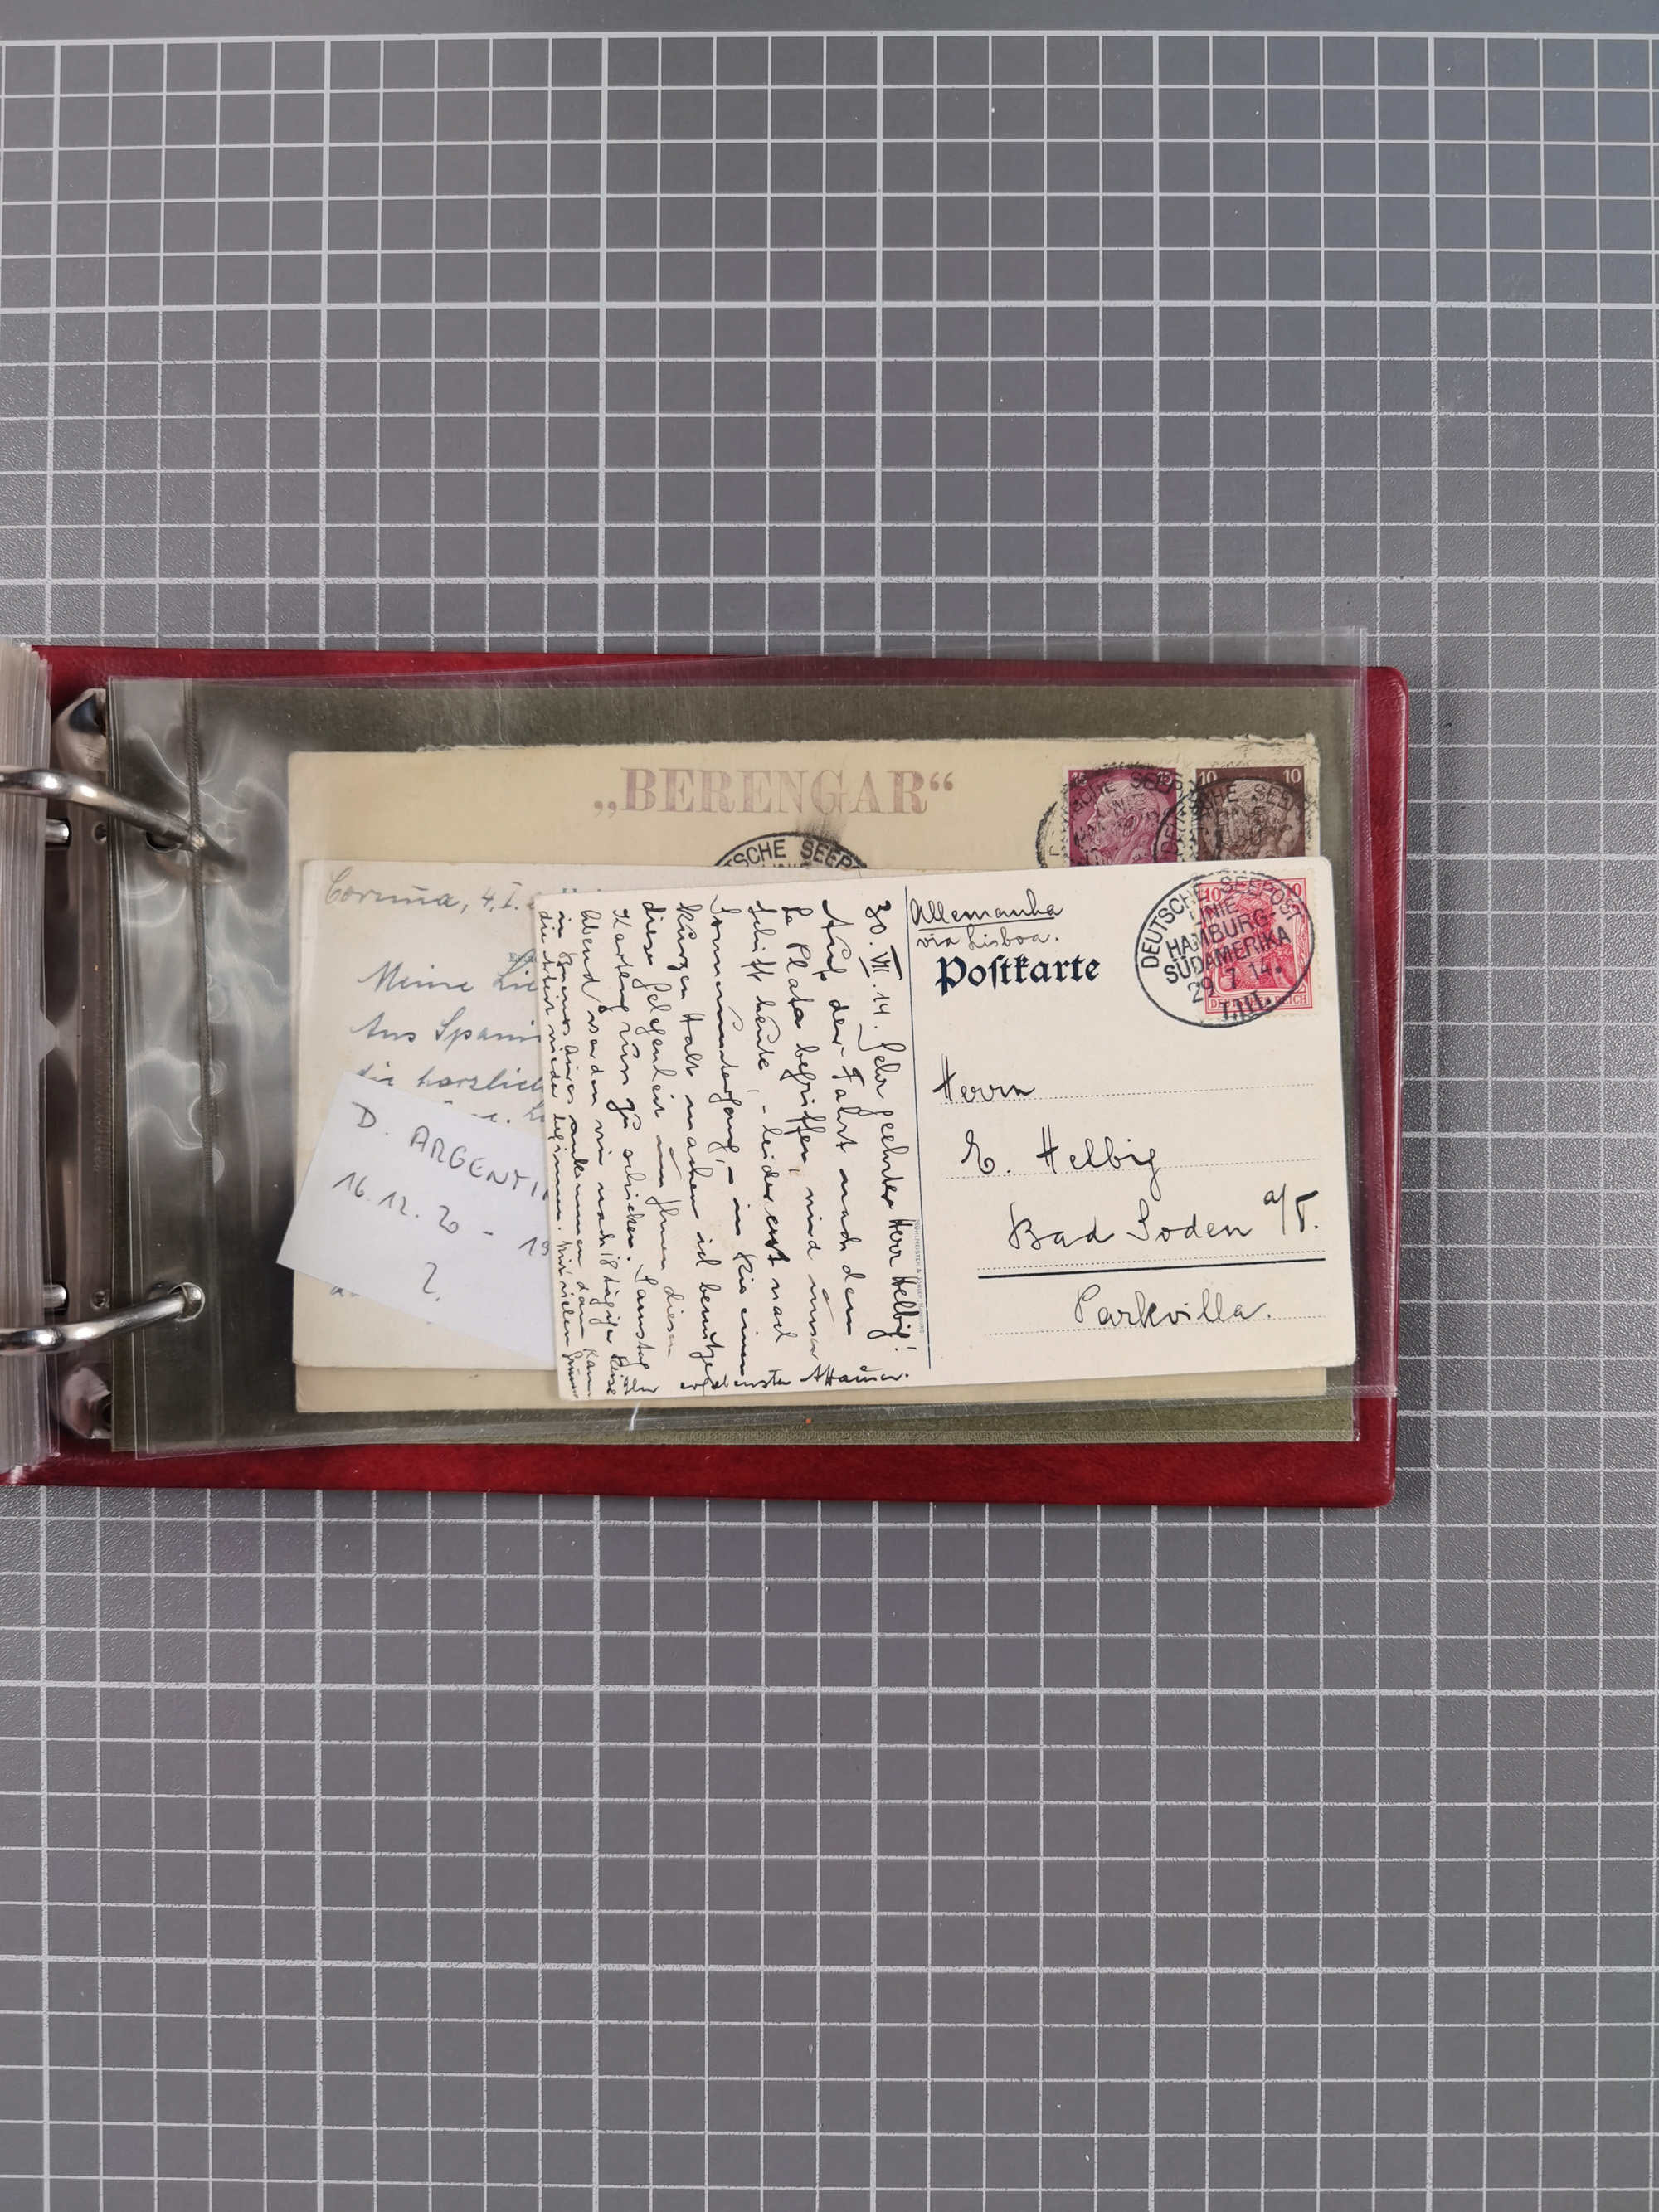 „BERENGAR“
15 15
10 10
SCHE SEEP
Coruña, 4.I.
Meine Lie
Aus Spani
die herzlich
D. ARGENTI
16.12.20 - 19
2.
Allemanha
via Lisboa.
Postkarte
DEUTSCHE SEEPOST
LINIE
HAMBURG-
SÜDAMERIKA
29 7 14.
10 10
DEUTSCHES REICH
Herrn
E. Helbig
Bad Soden a/T.
Parkvilla.
30.VII.14. Sehr geehrter Herr Helbig!
Auf der Fahrt nach dem
La Plata begriffen, wird unser
Schiff heute, - leider erst nach
Sonnenuntergang, - in Rio einen
kurzen Halt machen ich benütze
diese Gelegenheit um Ihnen diesen
Kartengruss zu schicken. Samstag
Abend werden wir nach 18 tägiger Reise
in Buenos Aires ankommen dann kann
die Arbeit wieder beginnen. Mit vielen Grüssen
Ihr ergebenster